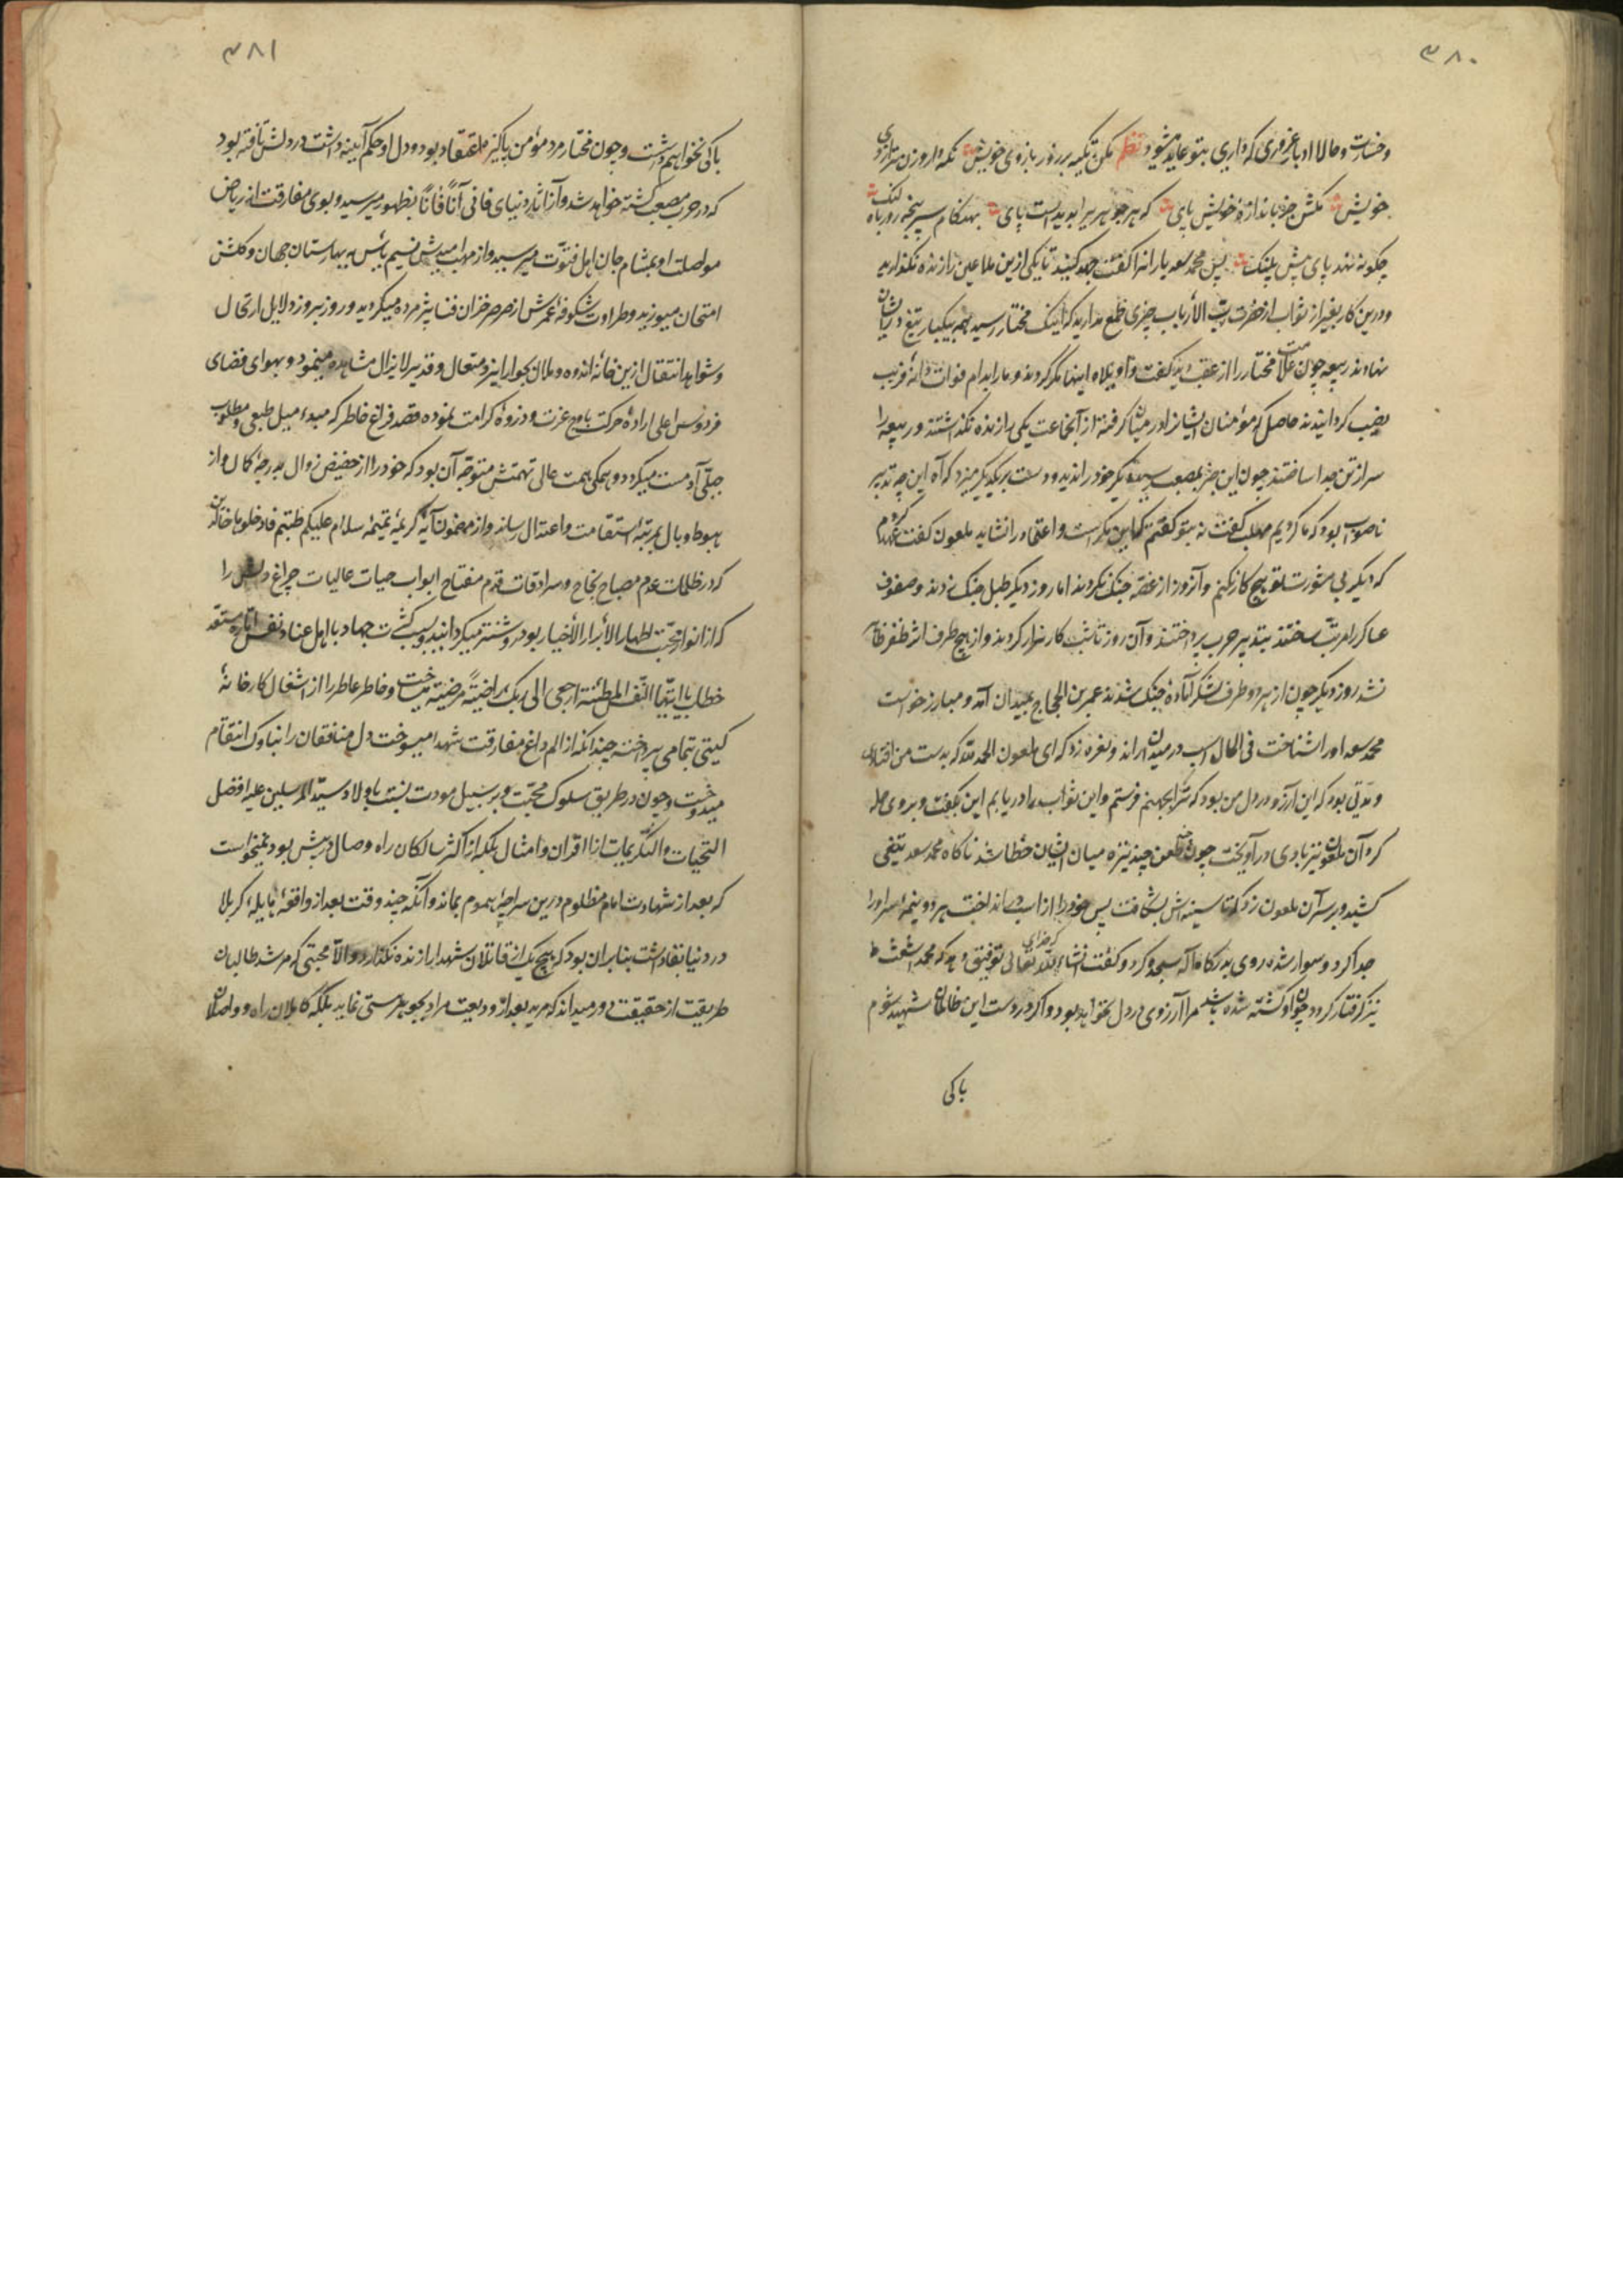 ۳۸۰
وخسارت و حالا ادبا غروری که داری بتو عاید میشود نظم مکن تکیه بر زور بازوی خویش نگه دار وزن ترازوی
خویش مکش جز باندازهٔ خویش پای که هر جوهری را پدیدست پای بهنگام سرپنجه روباه لنگ
چگونه نهد پای پیش پلنگ پس محمد سعد یارانرا گفت جهد کنید تا یکی ازین ملاعین را زنده نگذارید
ودرین کار بغیر از ثواب از حضرت رب الأرباب چیزی طمع مدارید که اینک مختار رسید همه بیکبار تیغ در ایشان
نهادند ربیعه چون علامت مختار را از عقب دید گفت واویلاه اینها مکر کردند و ما را بدام فوات دانه فریب
نصیب کردانیدند حاصل که مؤمنان ایشانرا در میان گرفته از آنجماعت یکی را زنده نگذاشتند و ربیعه را
سر از تن جدا ساختند چون این خبر بمصعب رسید دیگر خود را ندید و دست بر یکدیگر میزد که آه این چه تدبیر
ناصواب بود که ما کردیم مهلب گفت نه بتو گفتم که این مکر است و اعتماد را نشاید ملعون گفت عهد کردم
که دیگر بی مشورت تو هیچ کار نکنم و آنروز از غصه جنگ نکردند اما روز دیگر طبل جنگ زدند وصفوف
عساکر را مرتب ساختند بتدبیر حرب پرداختند وآن روز تا شب کارزار کردند و از هیچ طرف اثر ظفر ظاهر
نشد روز دیگر چون از هر دو طرف لشکر آمادهٔ جنگ شدند عمر بن الحجاج بمیدان آمد و مبارز خواست
محمد سعد او را شناخت فی الحال اسب در میدان راند و نعره زد که ای ملعون الحمد لله که بدست من افتادی
و مدتی بود که این آرزو در دل من بود که ترا بجهنم فرستم و این ثواب را دریابم این بگفت و بروی حمله
کرد آن ملعون نیز با وی در آویخت چون طعن چند نیزه میان ایشان خطا شد ناگاه محمد سعد تیغی
کشید و بر سر آن ملعون زد که تا سینه اش بشکافت پس خود را از اسب در انداخت هر دو نیمه سر او را
جدا کرد و سوار شده روی بدرگاه اله سجده کرد و گفت انشاء الله تعالی که خدای توفیق دهد که محمد اشعث
نیز گرفتار گردد چون او کشته شده باشد مرا آرزوی در دل نخواهد بود و اگر در دست این ظالمان شهید شوم
باکی
۳۸۱
باکی نخواهم داشت و چون مختار مرد مؤمن پاکیزه اعتقاد بود و دل او حکم آیینه داشت در دلش تافته بود
که در حرب مصعب کشته خواهد شد و آثار دنیای فانی آناً فآناً بظهور میرسید و بوی مفارقت از ریاض
مواصلت او بمشام جان اهل فتوت میرسید و از مهب امیدش نسیم یأس به بهارستان جهان و گلشن
امتحان میوزید و طراوت شکوفهٔ عمرش از صرصر خزان فنا پژمرده میکردید و روز بروز دلایل ارتحال
و شواهد انتقال ازین خانهٔ اندوه و ملال بجوار ایزد متعال و قدیر لایزال مشاهده مینمود و بهوای فضای
فردوس اعلی ارادهٔ حرکت باوج عزت و ذروهٔ کرامت نموده قصد فراغ خاطر که مبدء میل طبعی و مطلوب
جبلی آدمست میکرد و همگی همت عالی نهمتش متوجه آن بود که خود را از حضیض زوال بدرجهٔ کمال و از
هبوط وبال بمرتبهٔ استقامت و اعتدال رساند و از مضمون آیهٔ کریمهٔ سلام علیکم طبتم فادخلوها خالدین
که در ظلمات عدم مصباح نجاح و سرادقات قدم مفتاح ابواب حیات عالیات چراغ دلش را
که از انوار محبت اطهار الأبرار الأخیار بود روشنتر میکردانید و بسبب کثرت جهاد با اهل عناد نفس اماره مستعد
خطاب یا ایتها النفس المطمئنة ارجعی الی ربک راضیةً مرضیة میساخت و خاطر عاطر را از اشغال کارخانهٔ
گیتی بتمامی پرداخته چندانکه از الم داغ مفارقت شهدا میسوخت دل منافقان را بناوک انتقام
میدوخت و چون در طریق سلوک محبت و بر سبیل مودت نسبت باولاد سید المرسلین علیه افضل
التحیات والتکریمات از اقران و امثال بلکه از اکثر سالکان راه وصال در پیش بود نمیخواست
که بعد از شهادت امام مظلوم درین سراچهٔ هموم بماند و آنکه چند وقت بعد از واقعهٔ هایله کربلا
در دنیا بقا داشت بنا بر آن بود که هیچ یک از قاتلان شهدا را زنده نگذارد والا محبتی که مرشد طالبان
طریقت از حقیقت دور میداند که مرید بعد از ودیعت مراد بجوهر هستی نماید بلکه کاملان راه و واصلان